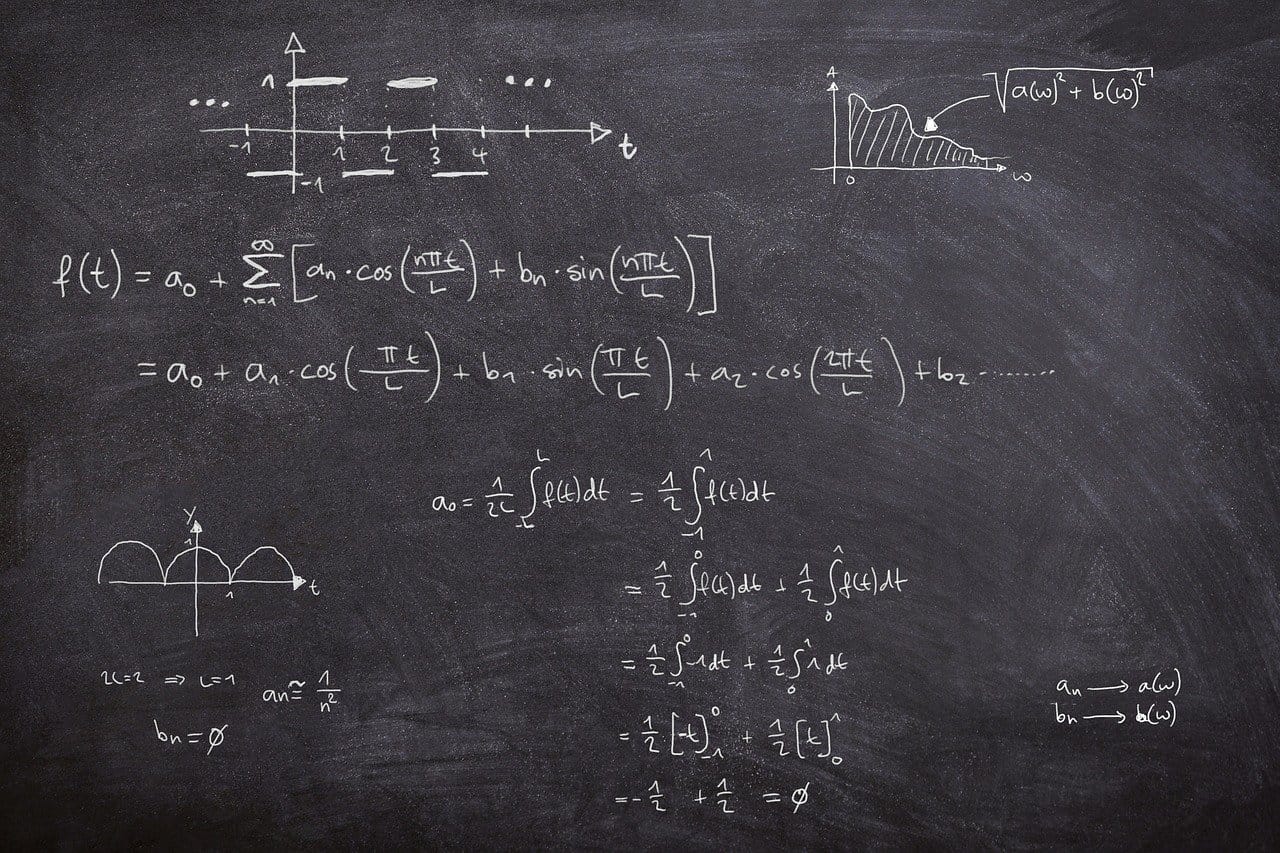 1
... ...
-1 1 2 3 4 t
-1
A
√(a(ω)² + b(ω)²)
0 ω
f(t) = a₀ + ∑_{n=1}^{∞} [aₙ · cos(nπt/L) + bₙ · sin(nπt/L)]
= a₀ + a₁ · cos(πt/L) + b₁ · sin(πt/L) + a₂ · cos(2πt/L) + b₂ ........
a₀ = 1/2L ∫_{-L}^{L} f(t)dt = 1/2 ∫_{-1}^{1} f(t)dt
= 1/2 ∫_{-1}^{0} f(t)dt + 1/2 ∫_{0}^{1} f(t)dt
= 1/2 ∫_{-1}^{0} -1dt + 1/2 ∫_{0}^{1} 1dt
= 1/2 [-t]_{-1}^{0} + 1/2 [t]_{0}^{1}
= -1/2 + 1/2 = ∅
y
1
1 t
2L=2 ⇒ L=1 aₙ ≅ 1/n²
bₙ = ∅
aₙ → a(ω)
bₙ → b(ω)